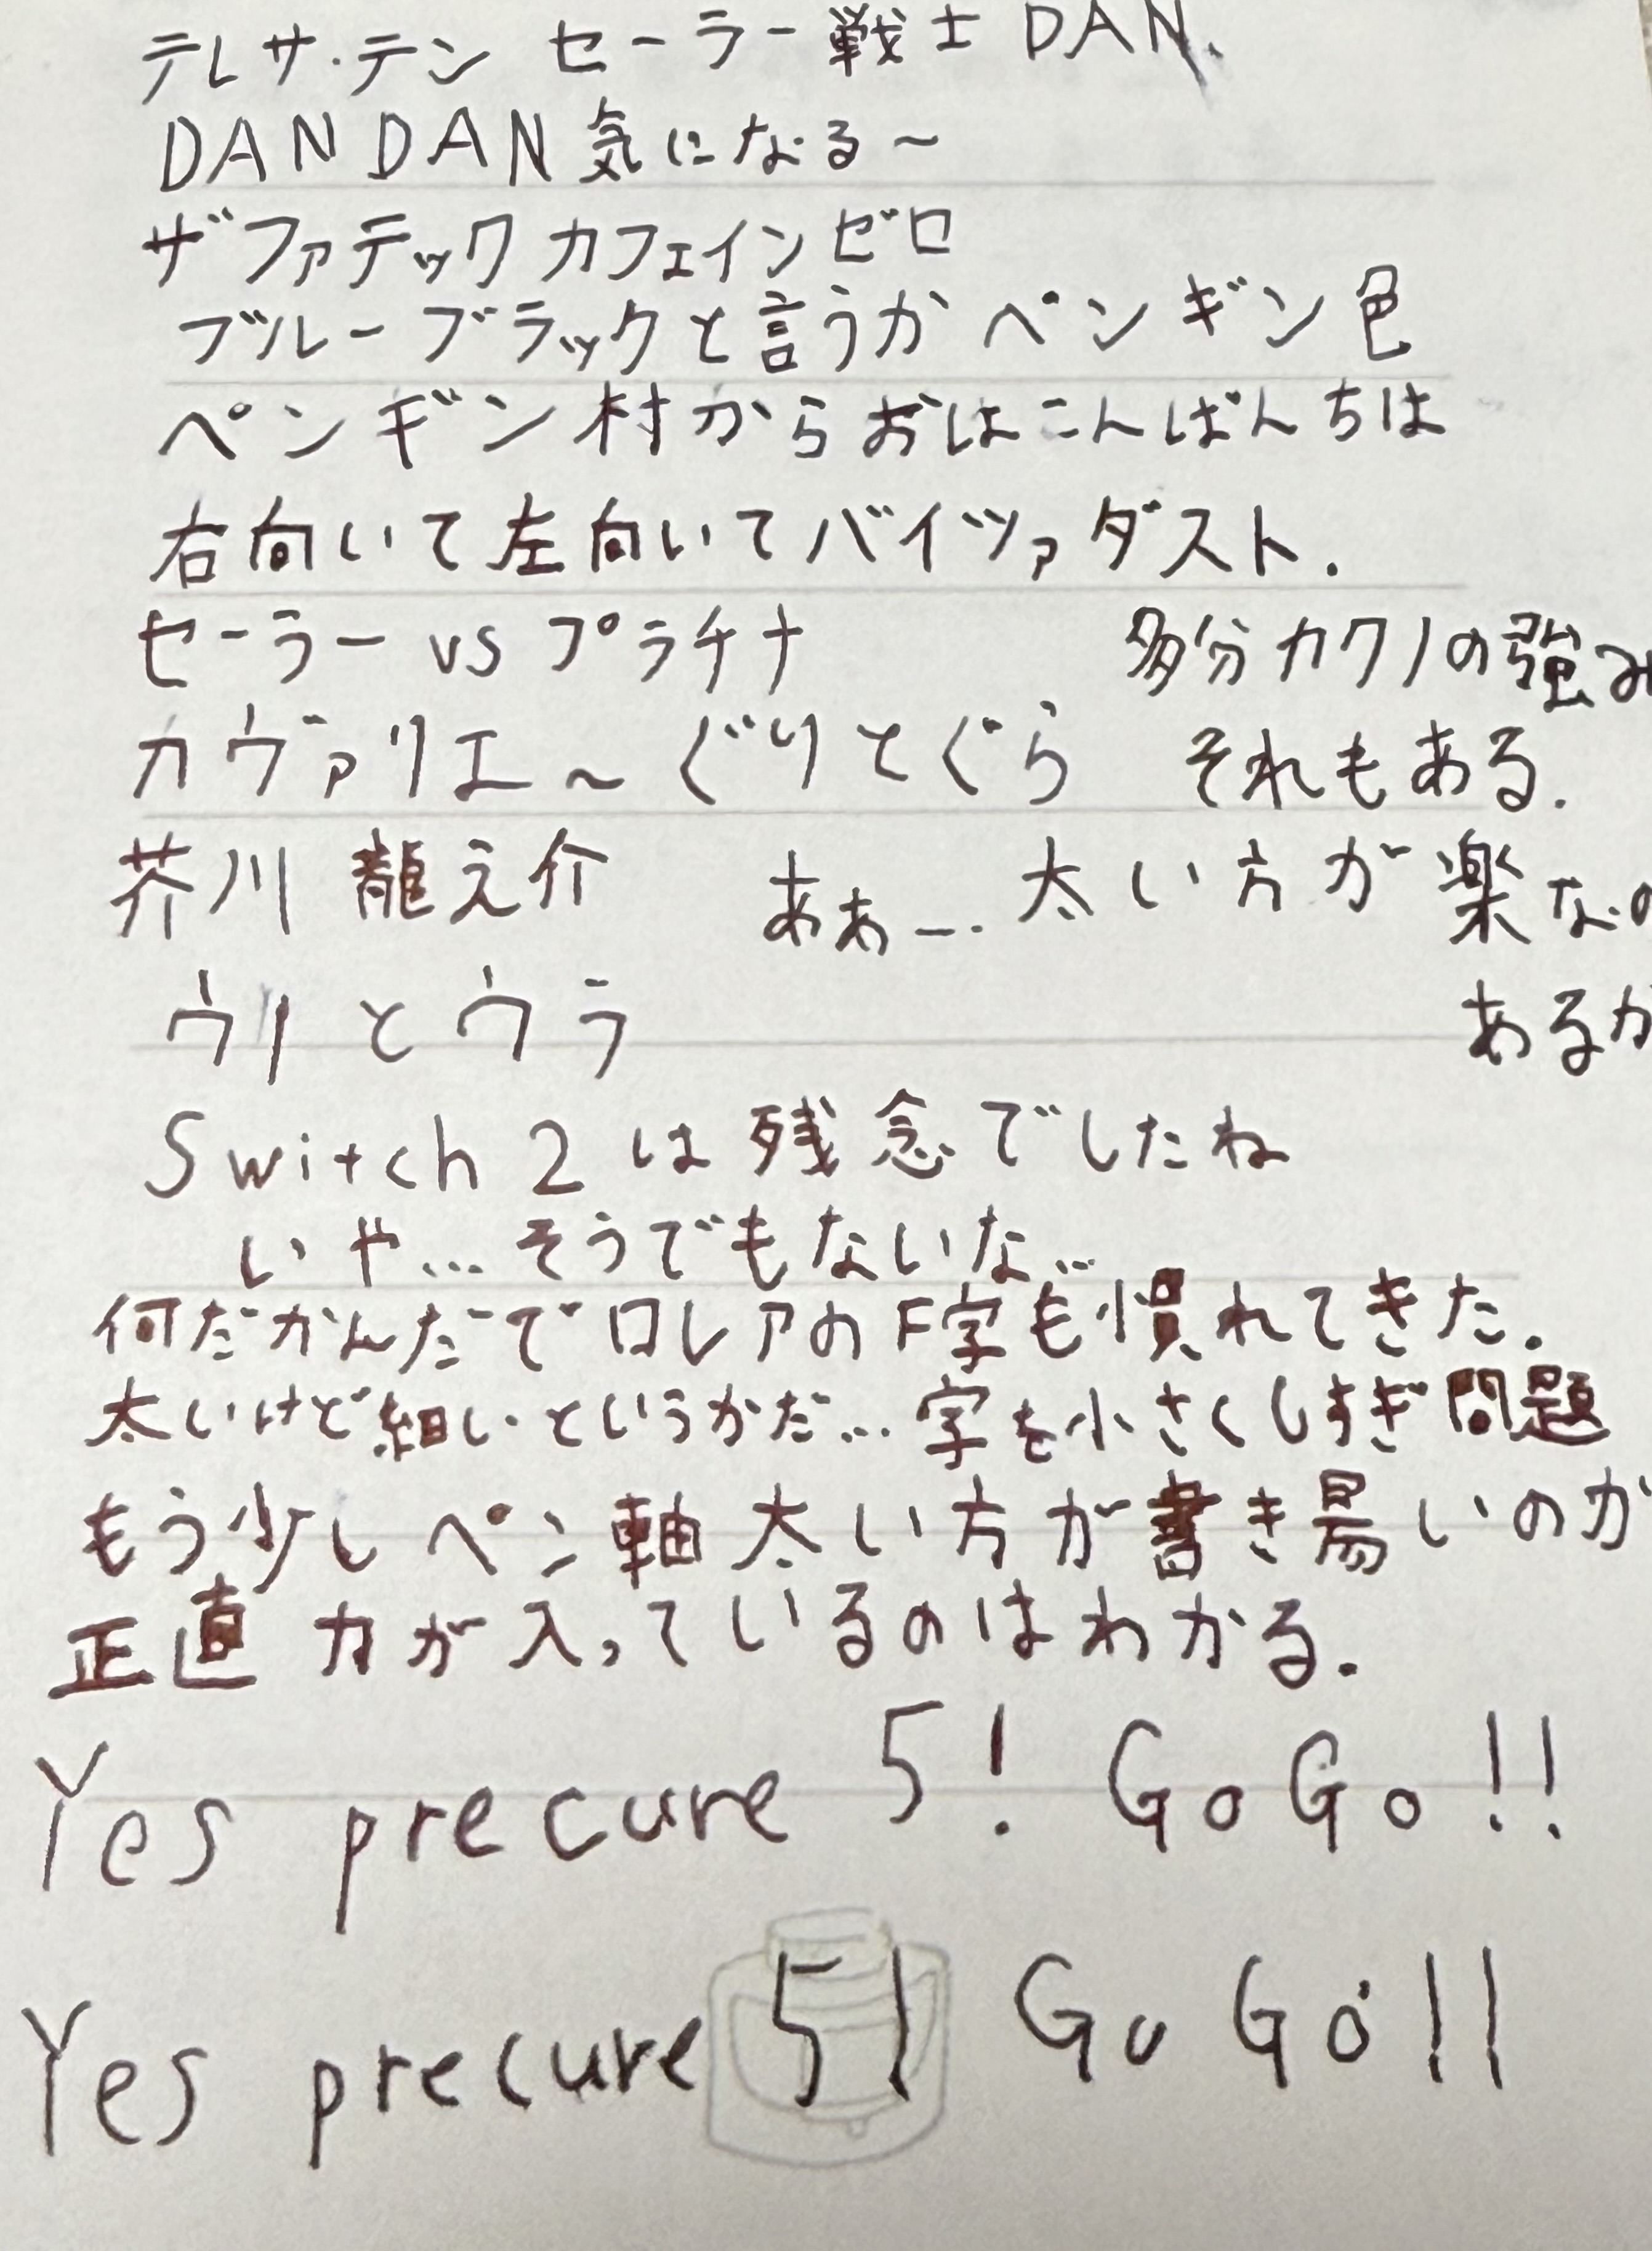 テレサ・テン セーラー戦士 DAN.
DAN DAN 気になる～
ザファテック カフェインゼロ
ブルーブラックと言うか ペンギン色
ペンギン村からおはこんばんちは
右向いて左向いてバイツァダスト.
セーラー vs プラチナ 多分カクノの強み
カヴァリエ～ ぐりとぐら それもある.
芥川 龍之介 あぁー.. 太い方が楽なの
ウリとウラ あるか
Switch 2 は残念でしたね
いや…そうでもないな…
何だかんだでロレアのF字も慣れてきた.
太いけど細いというかだ… 字を小さくしすぎ問題
もう少しペン軸太い方が書き易いのか
正直 力が入っているのはわかる.
Yes precure 5! GoGo!!
Yes precure 5! GoGo!!